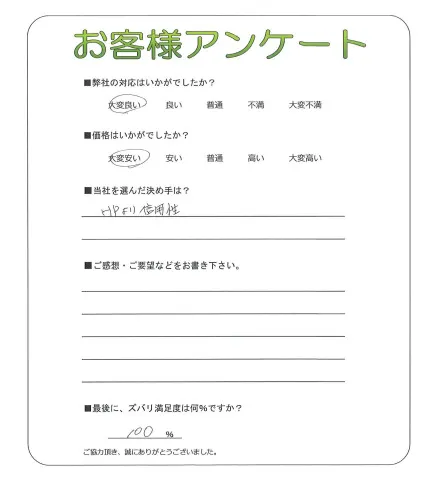 お客様アンケート
■弊社の対応はいかがでしたか？
大変良い 良い 普通 不満 大変不満
■価格はいかがでしたか？
大変安い 安い 普通 高い 大変高い
■当社を選んだ決め手は？
HPより信用性
■ご感想・ご要望などをお書き下さい。
■最後に、ズバリ満足度は何%ですか？
100 %
ご協力頂き、誠にありがとうございました。